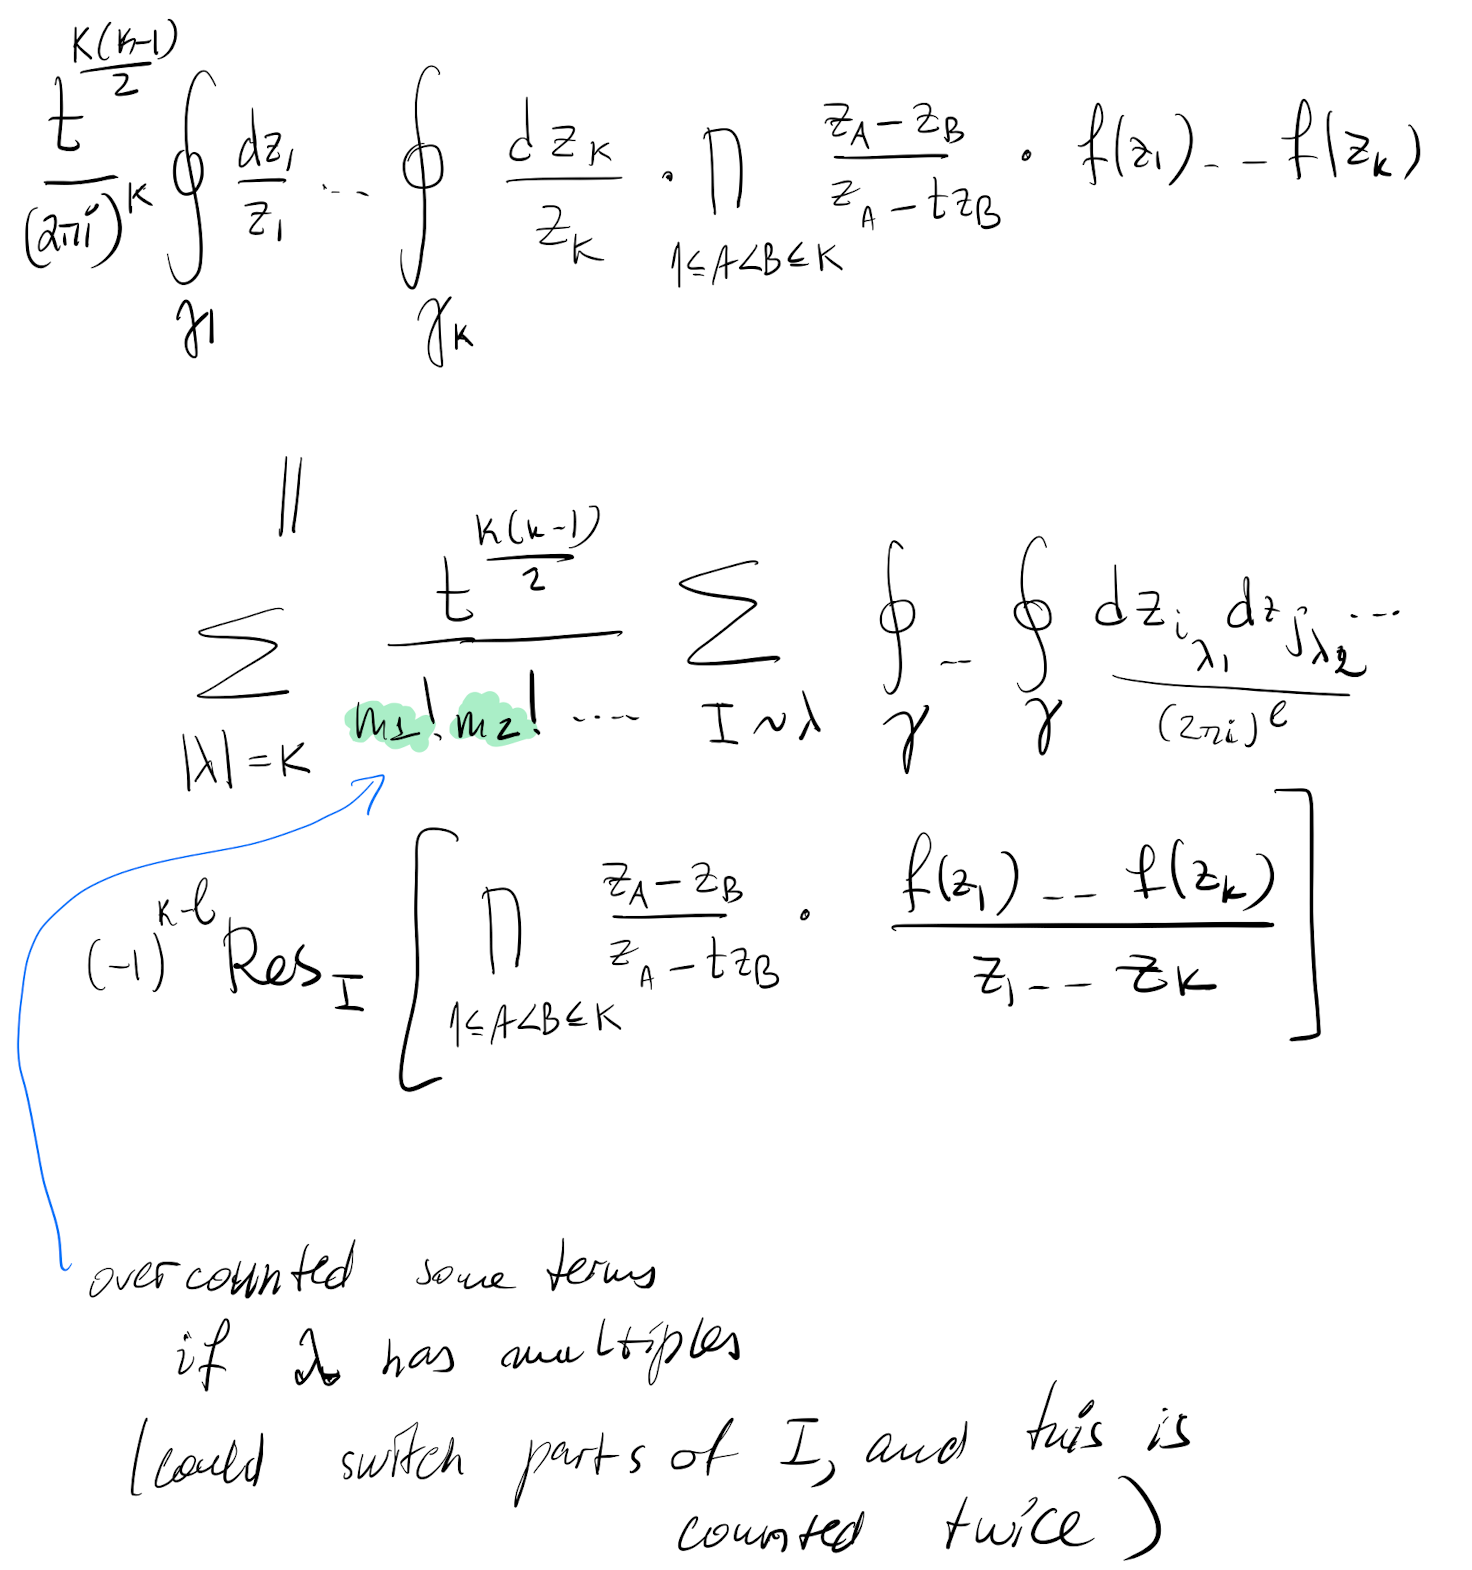 t^{K(K-1)/2} / (2πi)^K ∮_{γ1} dz_1/z_1 ... ∮_{γK} dz_K/z_K · ∏_{1≤A<B≤K} (z_A - z_B)/(z_A - t z_B) · f(z_1) -- f(z_K)
||
∑_{|λ|=K} t^{K(K-1)/2} / (m_1! m_2! ....) ∑_{I~λ} ∮_γ -- ∮_γ (dz_{i_{λ_1}} dz_{j_{λ_2}} ...)/(2πi)^ℓ
(-1)^{K-ℓ} Res_I [ ∏_{1≤A<B≤K} (z_A - z_B)/(z_A - t z_B) · (f(z_1) -- f(z_K))/(z_1 -- z_K) ]
overcounted some terms
if λ has multiples
(could switch parts of I, and this is
counted twice)